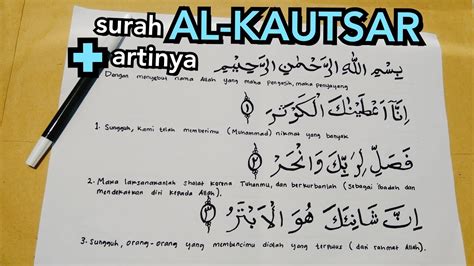 surah AL-KAUTSAR
+ artinya
بِسْمِ اللهِ الرَّحْمٰنِ الرَّحِيْمِ
Dengan menyebut nama Allah yang maha pengasih, maha penyayang
اِنَّآ اَعْطَيْنٰكَ الْكَوْثَرَ ١
1. Sungguh, Kami telah memberimu (Muhammad) nikmat yang banyak
فَصَلِّ لِرَبِّكَ وَانْحَرْ ٢
2. Maka laksanakanlah sholat karena Tuhanmu, dan berkurbanlah (sebagai ibadah dan
mendekatkan diri kepada Allah).
اِنَّ شَانِئَكَ هُوَ الْاَبْتَرُ ٣
3. Sungguh, orang-orang yang membencimu dialah yang terputus (dari rahmat Allah).